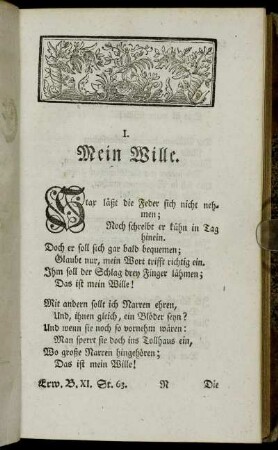 I.
Mein Wille.
Star läßt die Feder sich nicht neh-
men;
Noch schreibt er kühn in Tag
hinein.
Doch er soll sich gar bald bequemen;
Glaubt nur, mein Wort trifft richtig ein.
Ihm soll der Schlag drey Finger lähmen;
Das ist mein Wille!
Mit andern soll ich Narren ehren,
Und, ihnen gleich, ein Blöder seyn?
Und wenn sie noch so vornehm wären:
Man sperrt sie doch ins Tollhaus ein,
Wo große Narren hingehören;
Das ist mein Wille!
Erw. B. XI. St. 63. N Die